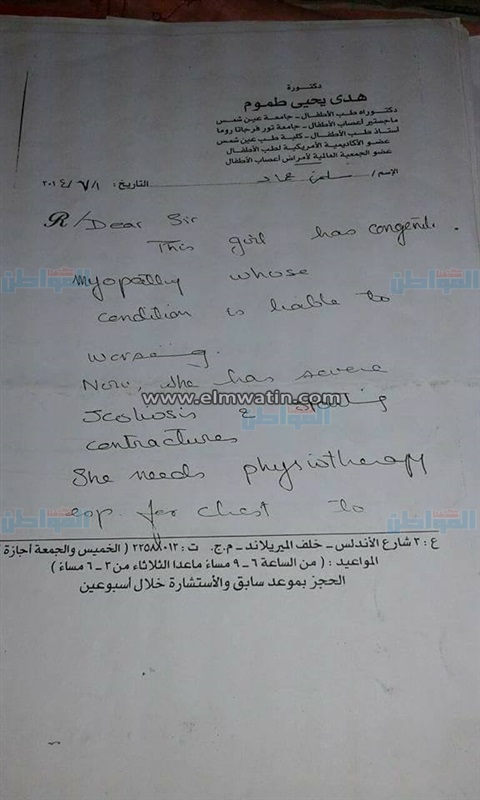 دكتورة
هدى يحيى طموم
دكتوراه طب الأطفال - جامعة عين شمس
ماجستير أعصاب الأطفال - جامعة تور فرجاتا روما
أستاذ طب الأطفال - كلية طب عين شمس
عضو الأكاديمية الأمريكية لطب الأطفال
عضو الجمعية العالمية لأمراض أعصاب الأطفال
الإسم / سلمى عماد التاريخ : ٢٠١٤/٧/١
R/ Dear Sir
This girl has congenit.
myopathy whose
condition is liable to
worsening.
Now, she has severe
www.elmwatin.com
Scoliosis &
contractures
She needs physiotherapy
esp. for chest to
ع : ٣ شارع الأندلس - خلف الميريلاند - م.ج. ت : ٢٢٥٨٧٠١٢ ( الخميس والجمعة أجازة )
المواعيد : ( من الساعة ٦ - ٩ مساءً ماعدا الثلاثاء من ٣ - ٦ مساءً )
الحجز بموعد سابق والأستشارة خلال أسبوعين
المواطن